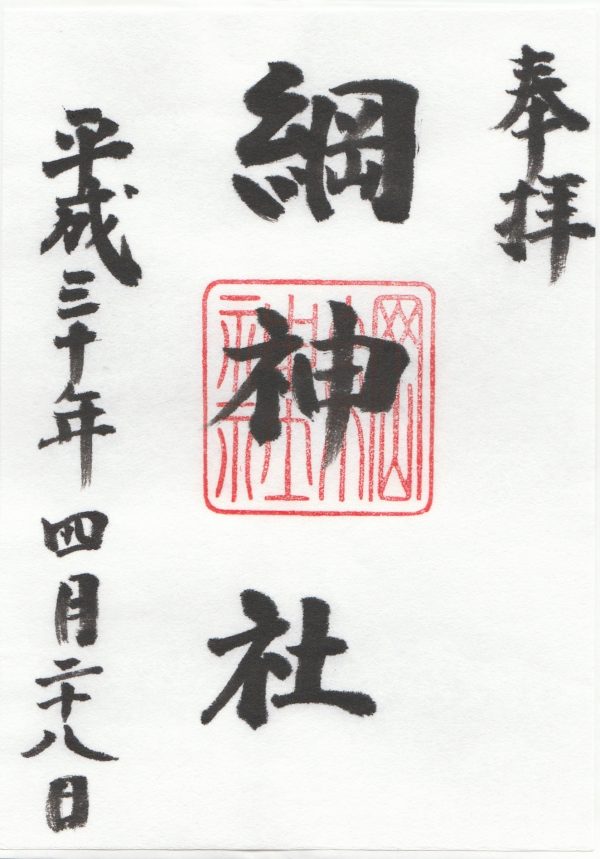 奉拝
綱神社
綱神社
平成三十年四月二十八日